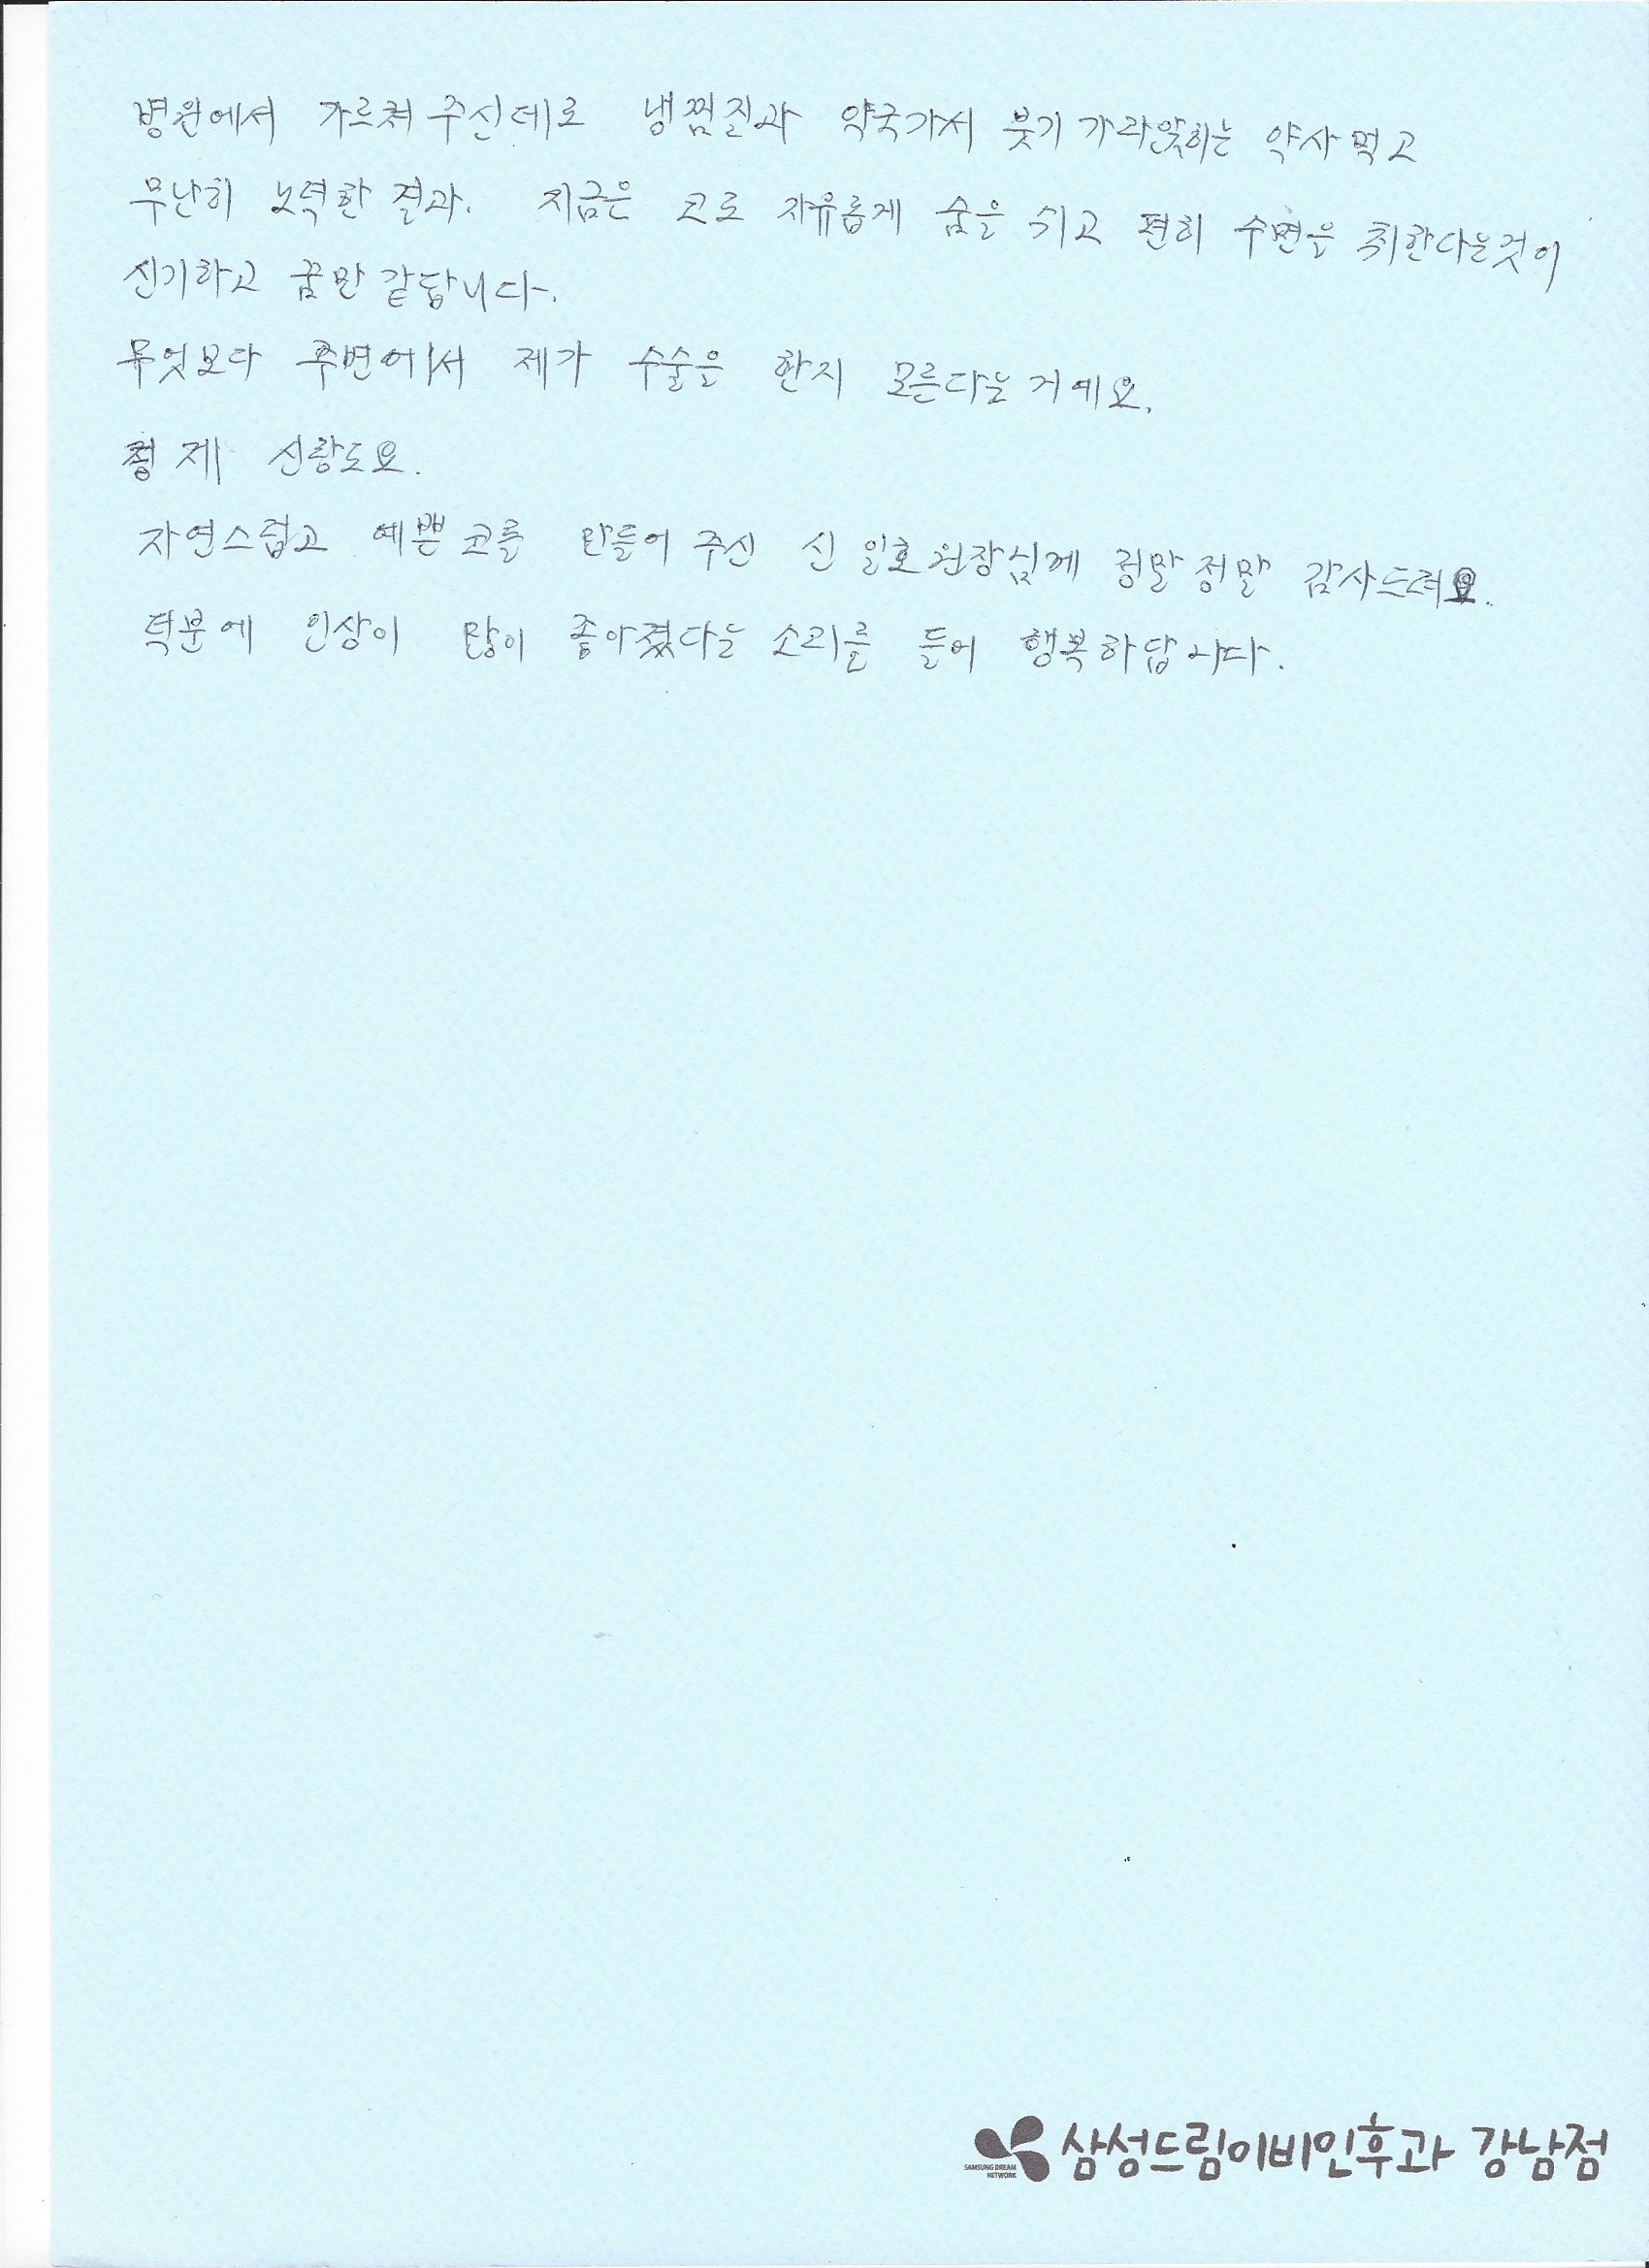 병원에서 가르쳐 주신데로 냉찜질과 약국가서 붓기 가라앉히는 약사 먹고
무난히 노력한 결과. 지금은 코로 자유롭게 숨을 쉬고 편히 수면을 취한다는것이
신기하고 꿈만 같답니다.
무엇보다 주변에서 제가 수술은 한지 모른다는거예요.
제 신랑도요.
자연스럽고 예쁜코를 만들어 주신 신일호원장님께 정말정말 감사드려요.
덕분에 인상이 많이 좋아졌다는 소리를 들어 행복하답니다.
SAMSUNG DREAM
NETWORK
삼성드림이비인후과 강남점